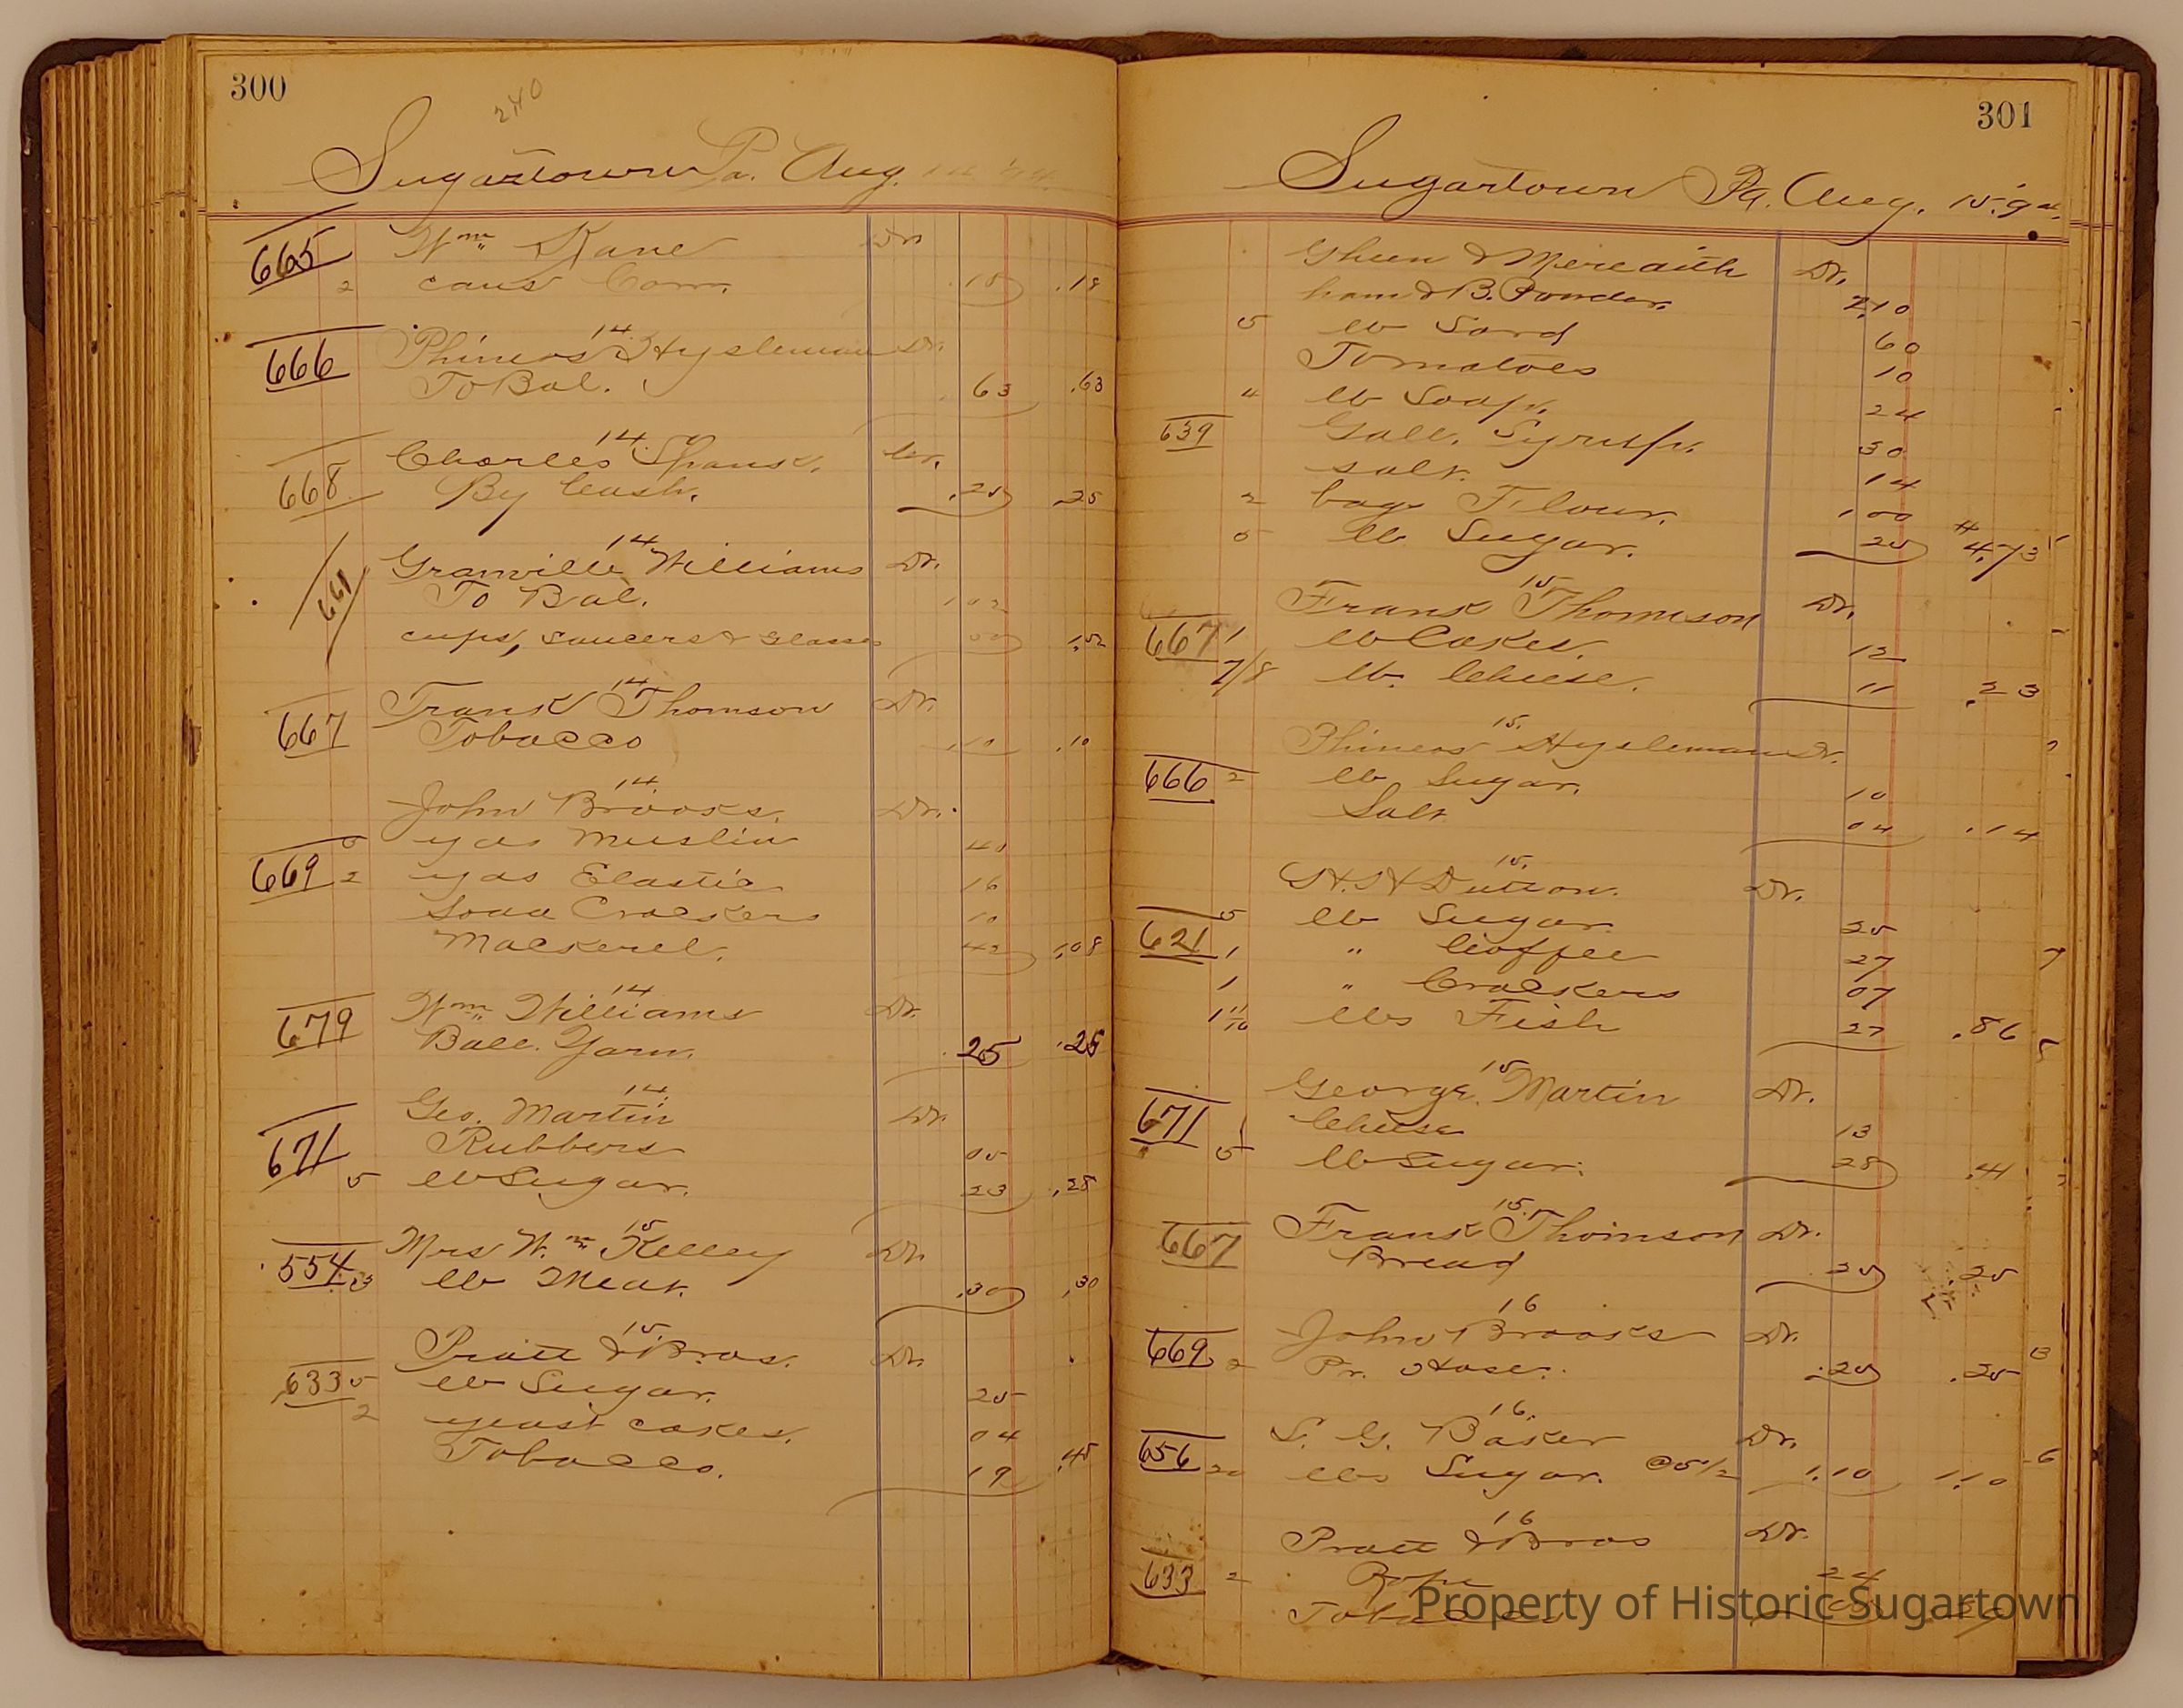 300
240
Sugartown Pa. Aug.
665 Wm Kane Dr.
2 cans Corn. .18 .18
14
666 Phineas Hysleman Dr.
To Bal. 63 .63
14
668 Charles Cr.
By Cash. .25 .25
14
661 Granville Williams Dr.
To Bal. 102
cups, saucers & Glasses 50 1.52
14
667 Frank Thomson Dr.
Tobacco .10 .10
14
John Brooks. Dr.
5 yds Muslin 40
669 2 yds Elastic 16
Soda Crackers 10
Mackerel. 42 1.08
14
679 Wm Williams Dr.
Ball Yarn. .25 .25
14
Geo. Martin Dr.
671 Rubbers 05
5 lb Sugar. 23 .28
15
Mrs Wm Kelley Dr.
554 3 lb Meat. .30 .30
15
Pratt & Bros. Dr.
633 5 lb Sugar. 25
2 yeast cakes. 04
Tobacco. 19 .48
301
Sugartown Pa. Aug. 15. 94.
& Meredith Dr.
ham & B. Powder. 2.10
5 lb Lard 60
Tomatoes 10
4 lb Soap. 24
639 Gall. Syrup. 30
salt. 14
2 bags Flour. 1 00
5 lb Sugar. 25 $4.73
15.
Frank Thomson Dr.
667 1 lb Cakes. 12
7/8 lb. Cheese. 11 .23
15.
Phineas Hysleman Dr.
666 2 lb Sugar. 10
Salt 04 .14
15.
H. H Dutton. Dr.
5 lb Sugar 25
621 1 " Coffee 27
1 " Crackers 07
1 11/16 lbs Fish 27 .86
15
George Martin Dr.
671 1 Cheese 13
5 lb Sugar. 28 .41
15.
667 Frank Thomson Dr.
Bread .25 .25
16
John Brooks Dr.
669 2 Pr. Hose. .25 .25
16.
S. G. Baker Dr.
656 20 lbs Sugar. @5 1/2 1.10 1.10
16
Pratt & Bros Dr.
633 2 Rope 24
Tobacco
Property of Historic Sugartown